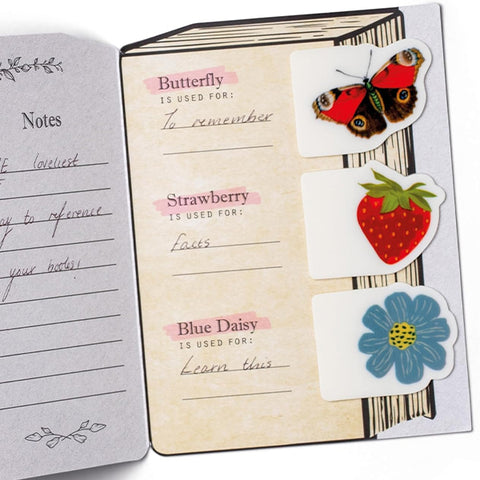 Notes
loveliest
to reference
your books!
Butterfly
IS USED FOR:
To remember
Strawberry
IS USED FOR:
Facts
Blue Daisy
IS USED FOR:
Learn this